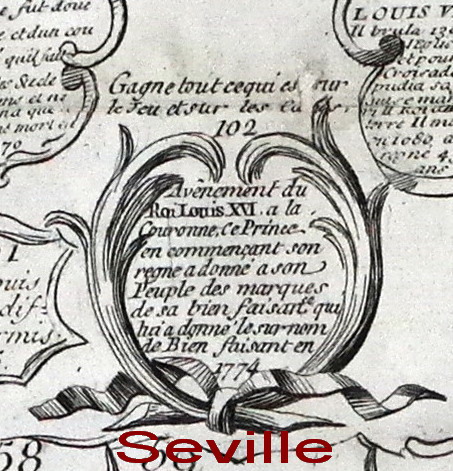 fut doue
et dun cou
qu'il fut
Siecle
ne et ne
na que
mort en
79
LOUIS V
Il brula 13
et pour
Croisad
pudia sa
terre Il m
n 1080, a
regné 4
ans
Gagne tout ce qui es sur
le Jeu et sur les
102
Avènement du
Roi Louis XVI. a la
Couronne, Ce Prince
en commençant son
regne a donné a son
Peuple des marques
de sa bien faisance qui
lui a donné le surnom
de Bien faisant en
1774
1
ouis
dif-
rmis
58
Seville